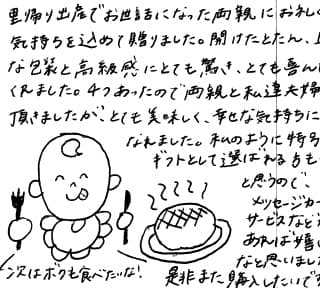 里帰り出産でお世話になった両親にお礼の
気持ちを込めて贈りました。開けたとたん、
な包装と高級感にとても驚き、とても喜ん
くれました。4つあったので両親と私達夫婦
頂きましたが、とても美味しく、幸せな気持ちに
なれました。私のように特別
ギフトとして選ばれる方も
と思うので、
メッセージカー
サービスなど
あれば嬉
なと思いまし
是非また購入したいです
次はボクも食べたいな!